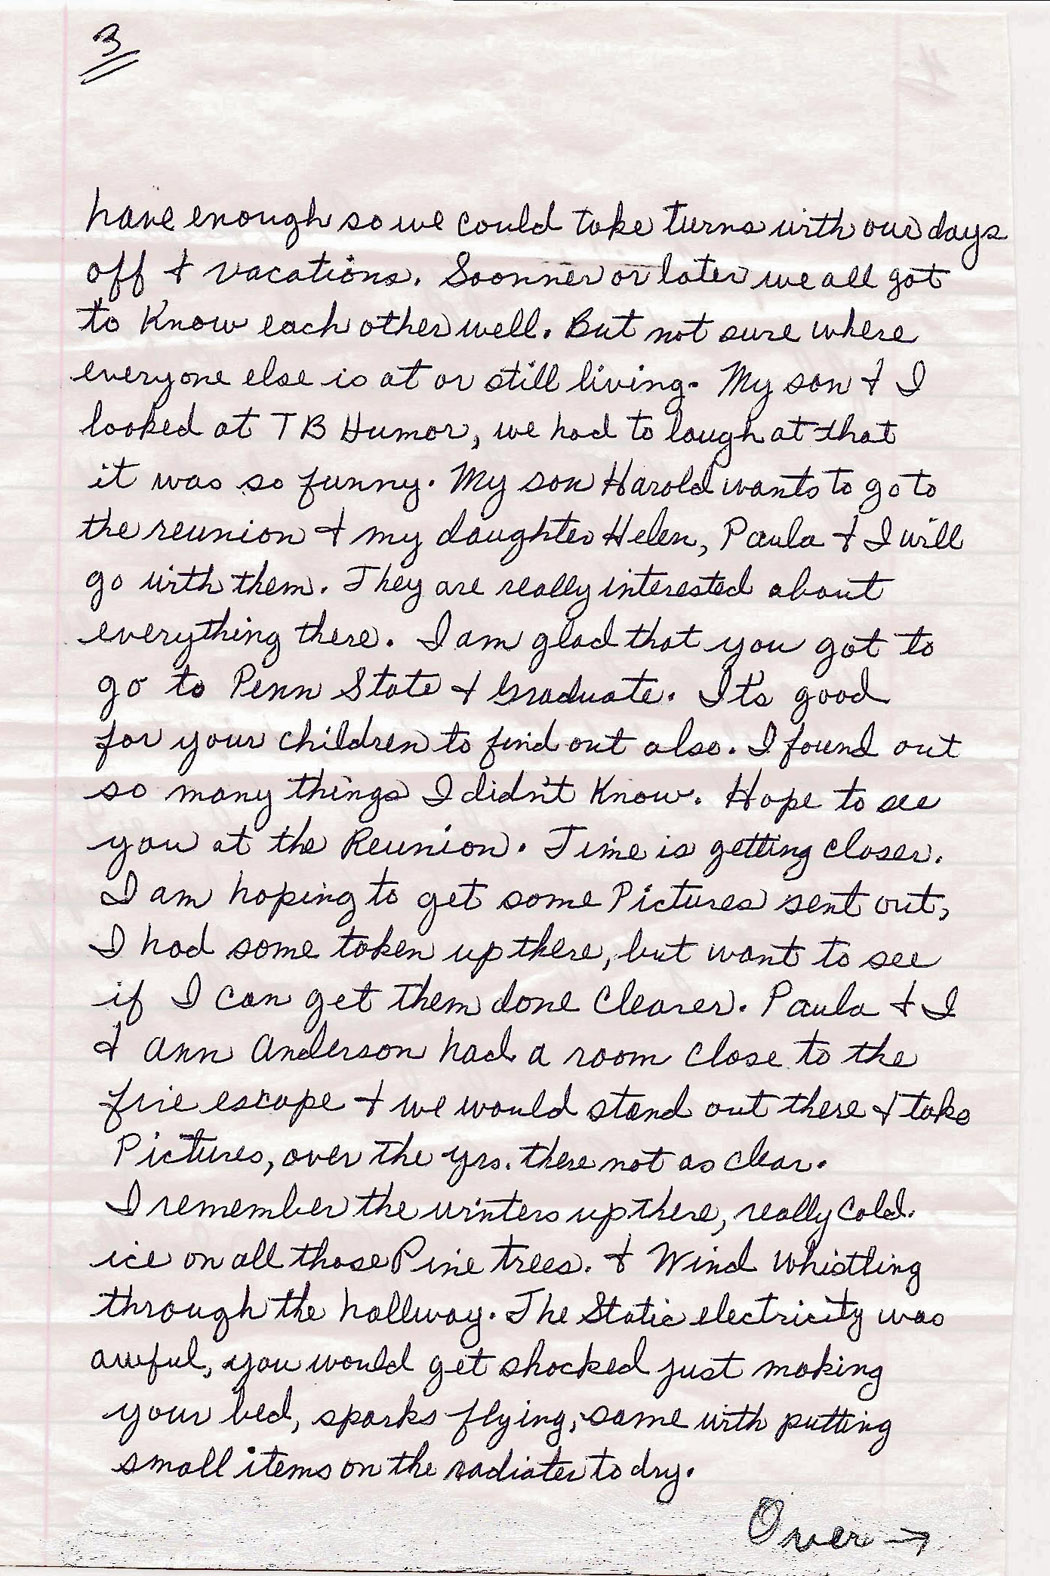 3
have enough so we could take turns with our days
off & vacations. Soonner or later we all got
to Know each other well. But not sure where
everyone else is at or still living. My son & I
looked at TB Humor, we had to laugh at that
it was so funny. My son Harold wants to go to
the reunion & my daughter Helen, Paula & I will
go with them. They are really interested about
everything there. I am glad that you got to
go to Penn State & Graduate. It's good
for your children to find out also. I found out
so many things I didn't Know. Hope to see
you at the Reunion. Time is getting closer.
I am hoping to get some Pictures sent out,
I had some taken up there, but want to see
if I can get them done Clearer. Paula & I
& Ann Anderson had a room close to the
fire escape & we would stand out there & take
Pictures, over the yrs. there not as clear.
I remember the winters up there, really Cold.
ice on all those Pine trees. & Wind Whistling
through the hallway. The Static electricity was
awful, you would get shocked just making
your bed, sparks flying, same with putting
small items on the radiater to dry.
Over →